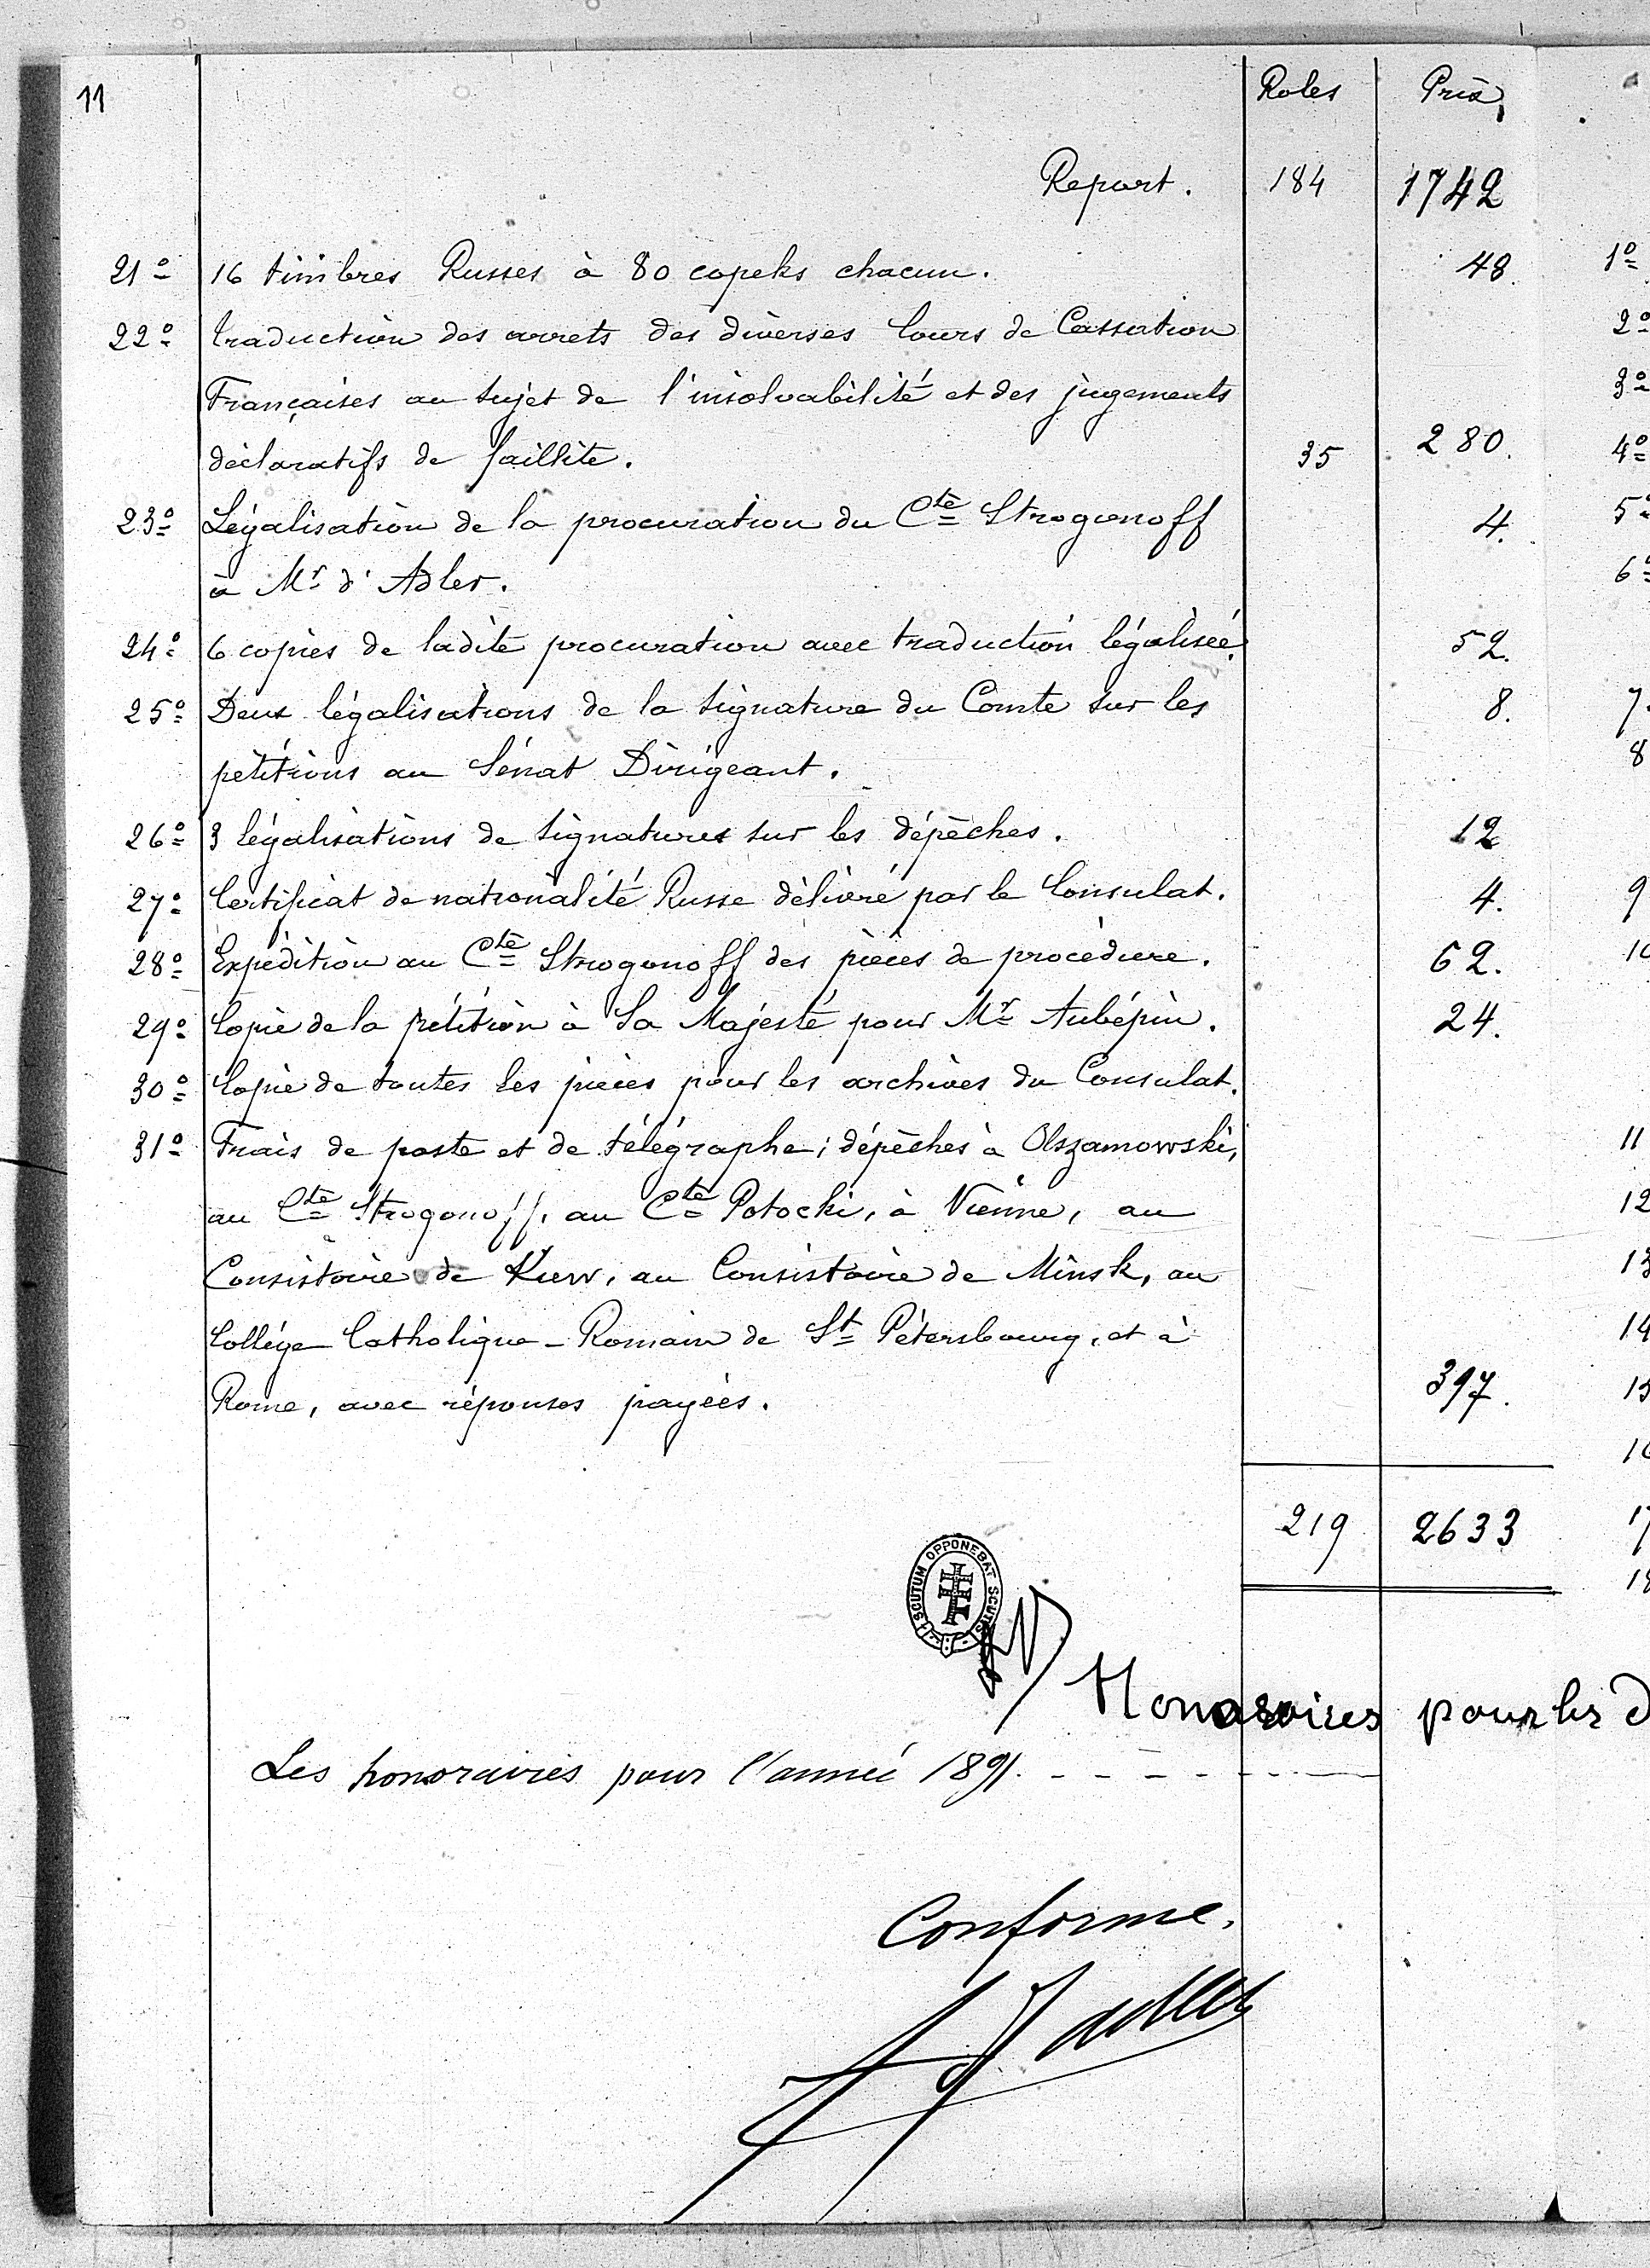 11
Roles Prix
Report. 184 1742
21° 16 timbres Russes à 80 copeks chacun. 48.
22° Traduction des arrets des diverses Cours de Cassation
Françaises au sujet de l'insolvabilité et des jugements
déclaratifs de faillite. 35 280.
23° Légalisation de la procuration du Cte Strogonoff 4.
à Mr d'Adler.
24° 6 copies de ladite procuration avec traduction légalisée. 52.
25° Deux légalisations de la signature du Comte sur les 8.
pétitions au Sénat Dirigeant.
26° 3 légalisations de signatures sur les dépèches. 12
27° Certificat de nationalité Russe délivré par le Consulat. 4.
28° Expédition au Cte Strogonoff des pièces de procédure. 62.
29° Copie de la pétition à Sa Majesté pour Mr Aubépin. 24.
30° Copie de toutes les pièces pour les archives du Consulat.
31° Frais de poste et de télégraphe; dépèches à Olszamowski,
au Cte Strogonoff, au Cte Potocki, à Vienne, au
Consistoire de Kiew, au Consistoire de Minsk, au
Collége Catholique-Romain de St Pétersbourg, et à
Rome, avec réponses payées. 397.
219 2633
SCUTUM OPPONEBAT SCUTIS
Honoraires pour les d
Les honoraires pour l'année 1891. - - - - - -
Conforme.
1°
2°
3°
4°
5°
6°
7.
8
9
10
11
12
13
14
15
16
17
18